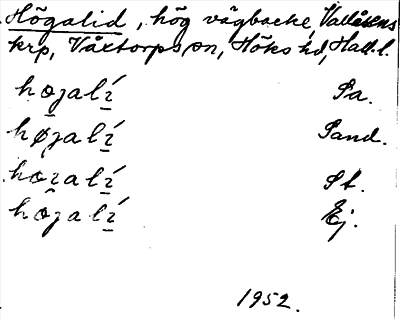 Högalid, hög vägbacke, Vallåsens
krp, Våxtorps sn, Höks hd, Hall.l.
hœgalí Pa.
høgalí Pand.
hœgalí St.
hœgalí Ej.
1952.